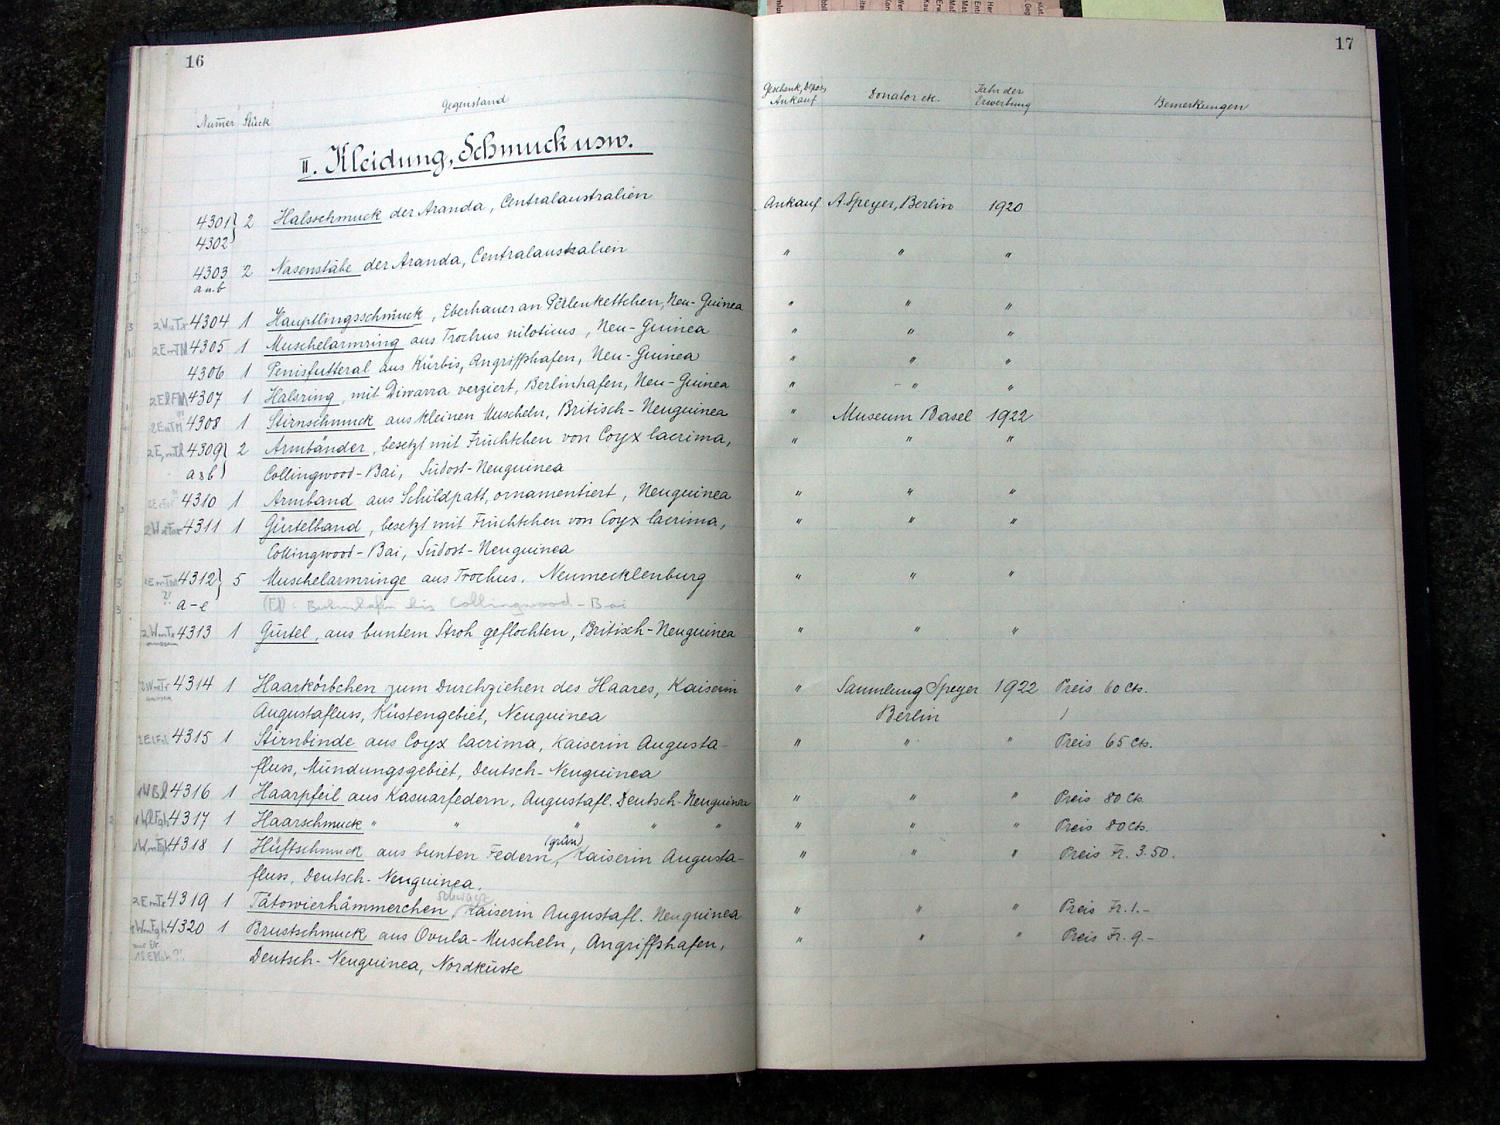 16
17
Numer Stück Gegenstand Geschenk, Depos, Ankauf Donator etc. Jahr der Erwerbung Bemerkungen
II. Kleidung, Schmuck usw.
4301 } 2 Halsschmuck der Aranda, Centralaustralien Ankauf A. Speyer, Berlin 1920
4302
4303 2 Nasenstäbe der Aranda, Centralaustralien " " "
a u. b
4304 1 Häuptlingsschmuck, Eberhauer an Perlenkettchen, Neu-Guinea " " "
4305 1 Muschelarmring aus Trochus niloticus, Neu-Guinea " " "
4306 1 Penisfutteral aus Kürbis, Angriffshafen, Neu-Guinea " " "
4307 1 Halsring, mit Diwarra verziert, Berlinhafen, Neu-Guinea " " "
4308 1 Stirnschmuck aus kleinen Muscheln, Britisch-Neuguinea " Museum Basel 1922
4309 } 2 Armbänder, besetzt mit Früchtchen von Coyx lacrima, " " "
a & b Collingwood-Bai, Südost-Neuguinea
4310 1 Armband aus Schildpatt, ornamentiert, Neuguinea " " "
4311 1 Gürtelband, besetzt mit Früchtchen von Coyx lacrima, " " "
Collingwood-Bai, Südost-Neuguinea
4312 } 5 Muschelarmringe aus Trochus. Neumecklenburg " " "
a-e bis Collingwood-Bai
4313 1 Gürtel, aus buntem Stroh geflochten, Britisch-Neuguinea " " "
4314 1 Haarkörbchen zum Durchziehen des Haares, Kaiserin Augustafluss, Küstengebiet, Neuguinea " Sammlung Speyer Berlin 1922 Preis 60 cts.
4315 1 Stirnbinde aus Coyx lacrima, Kaiserin Augusta- " " " Preis 65 cts.
fluss, Mündungsgebiet, Deutsch-Neuguinea
4316 1 Haarpfeil aus Kasuarfedern, Augustafl. Deutsch-Neuguinea " " " Preis 80 cts.
4317 1 Haarschmuck " " " " " " " " Preis 80 cts.
4318 1 Hüftschmuck aus bunten Federn, (grün) Kaiserin Augusta- " " " Preis Fr. 3.50.
fluss, Deutsch-Neuguinea.
4319 1 Tätowierhämmerchen schwarz Kaiserin Augustafl. Neuguinea " " " Preis Fr. 1.-
4320 1 Brustschmuck aus Ovula-Muscheln, Angriffshafen, " " " Preis Fr. 9.-
Deutsch-Neuguinea, Nordküste